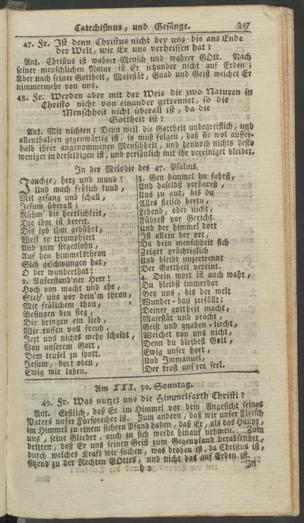 Catechismus, und Gesänge. 247
47. Fr. Ist denn Christus nicht bey uns bis ans Ende
der Welt, wie Er uns verheissen hat?
Ant. Christus ist wahrer Mensch und wahrer GOtt. Nach
seiner menschlichen Natur ist Er jetzunder nicht auf Erden;
Aber nach seiner Gottheit, Majestät, Gnad und Geist weichet Er
nimmermehr von uns.
48. Fr. Werden aber mit der Weis die zwo Naturen in
Christo nicht von einander getrennet, so die
Menschheit nicht überall ist, da die
Gottheit ist?
Ant. Mit nichten; Denn weil die Gottheit unbegreiflich, und
allenthalben gegenwärtig ist, so muß folgen, daß sie wol ausser-
halb ihrer angenommenen Menschheit, und dennoch nichts desto
weniger in derselbigen ist, und persönlich mit ihr vereiniget bleibet.
In der Melodie des 47. Psalms.
Jauchze, herz und mund!
Und mach frölich kund,
Mit gesang und schall,
Jesum überall;
Rühm' die herrlichkeit,
Die ihm ist bereit.
Dis lob ihm gebührt,
Weil er triumphiert
Und zum siegeslohn,
Auf den himmelsthron
Sich geschwungen hat,
O der wunderthat!
2. Auferstand'ner Herr!
Hoch von macht und ehr,
Sieh' uns vor dein'm thron,
Mit frölichem thon,
Besingen den sieg,
Die bringen ein lied,
Wir ruffen voll freud.
Jetzt uns nichts mehr scheidt,
Von unserem Gott,
Dem teufel zu spott.
Jesum, dort oben,
Ewig wir loben.
3. Gen himmel du fahrst,
Und daselbst verharrst,
Uns zu gut, bis du
Alles fleisch herzu,
Lebend, oder nicht,
Führest vor Gericht.
Und der himmel dort
Ist allein der ort,
Da dein menschheit sich
Zeiget prächtiglich
Und bleibt unzertrennt
Der Gottheit vereint.
4. Dein wort ist auch wahr,
Du bleibst immerdar
Bey uns, bis der welt
Wunder-bau zerfällt:
Deiner gottheit macht,
Majestät und pracht,
Geist und gnaden-liecht,
Weichet von uns nicht,
Denn du bleibest Gott
Ewig unser hort,
Und Immanuel,
Der trost uns'rer seel.
Am XXX. 30. Sonntag.
49. Fr. Was nutzet uns die Himmelfarth Christi?
Ant. Erstlich, daß Er im Himmel vor dem Angesicht seines
Vaters unser Fürsprecher ist. Zum andern, daß wir unser Fleisch
im Himmel zu einem sichern Pfand haben, daß Er, als das Haupt,
uns, seine Glieder, auch zu sich werde hinauf nehmen. Zum
dritten, daß Er uns seinen Geist zum Gegenpfand herabsendet,
durch welches Kraft wir suchen, was droben ist, da Christus ist,
sitzend zu der Rechten GOttes, und nicht das auf Erden ist.
In